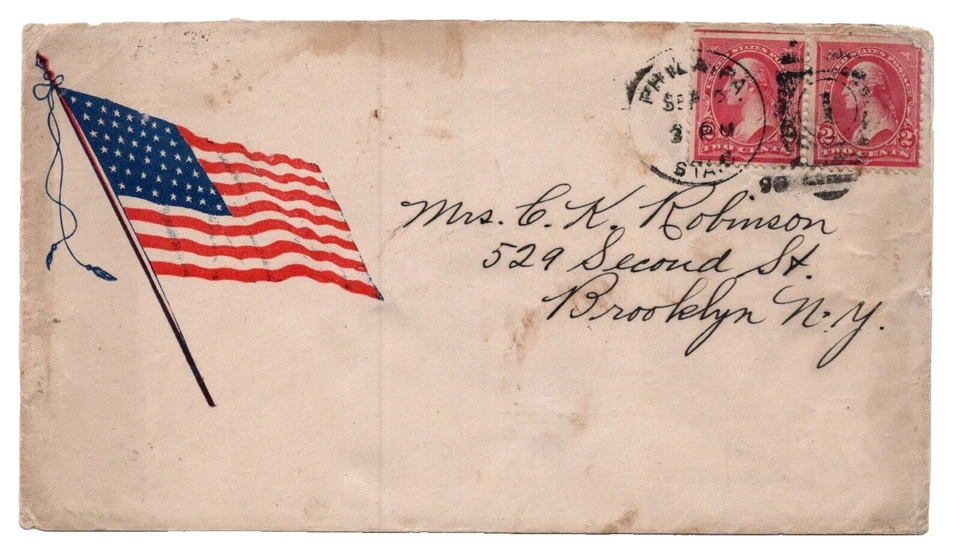 PHILA. PA.
SEP
3 PM
STA. C
UNITED STATES POSTAGE
TWO CENTS
2 2
TWO CENTS
Mrs. C. K. Robinson
529 Second St.
Brooklyn N.Y.